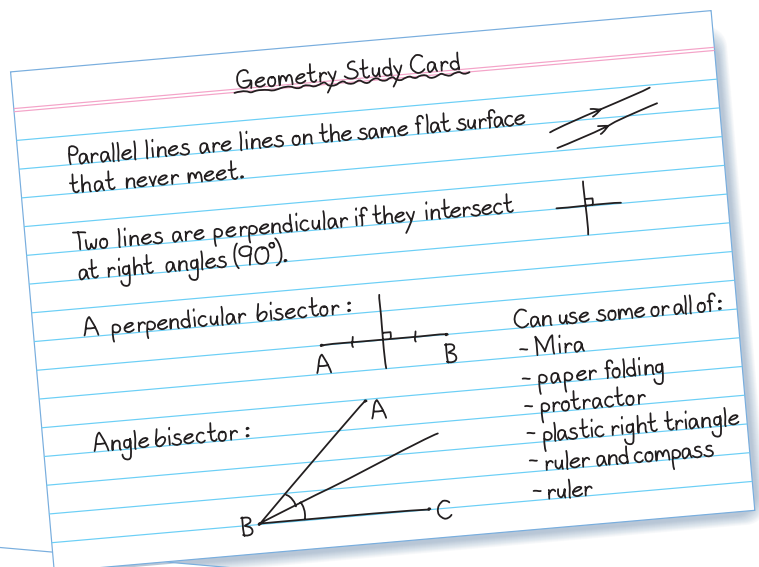 Geometry Study Card
Parallel lines are lines on the same flat surface
that never meet.
Two lines are perpendicular if they intersect
at right angles (90°).
A perpendicular bisector:
A
B
Angle bisector:
A
B
C
Can use some or all of:
- Mira
- paper folding
- protractor
- plastic right triangle
- ruler and compass
- ruler